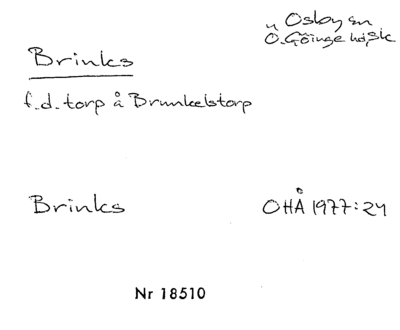 Osby sn
Ö. Göinge hd, Sk
Brinks
f.d. torp å Brunkelstorp
Brinks OHÅ 1977:24
Nr 18510